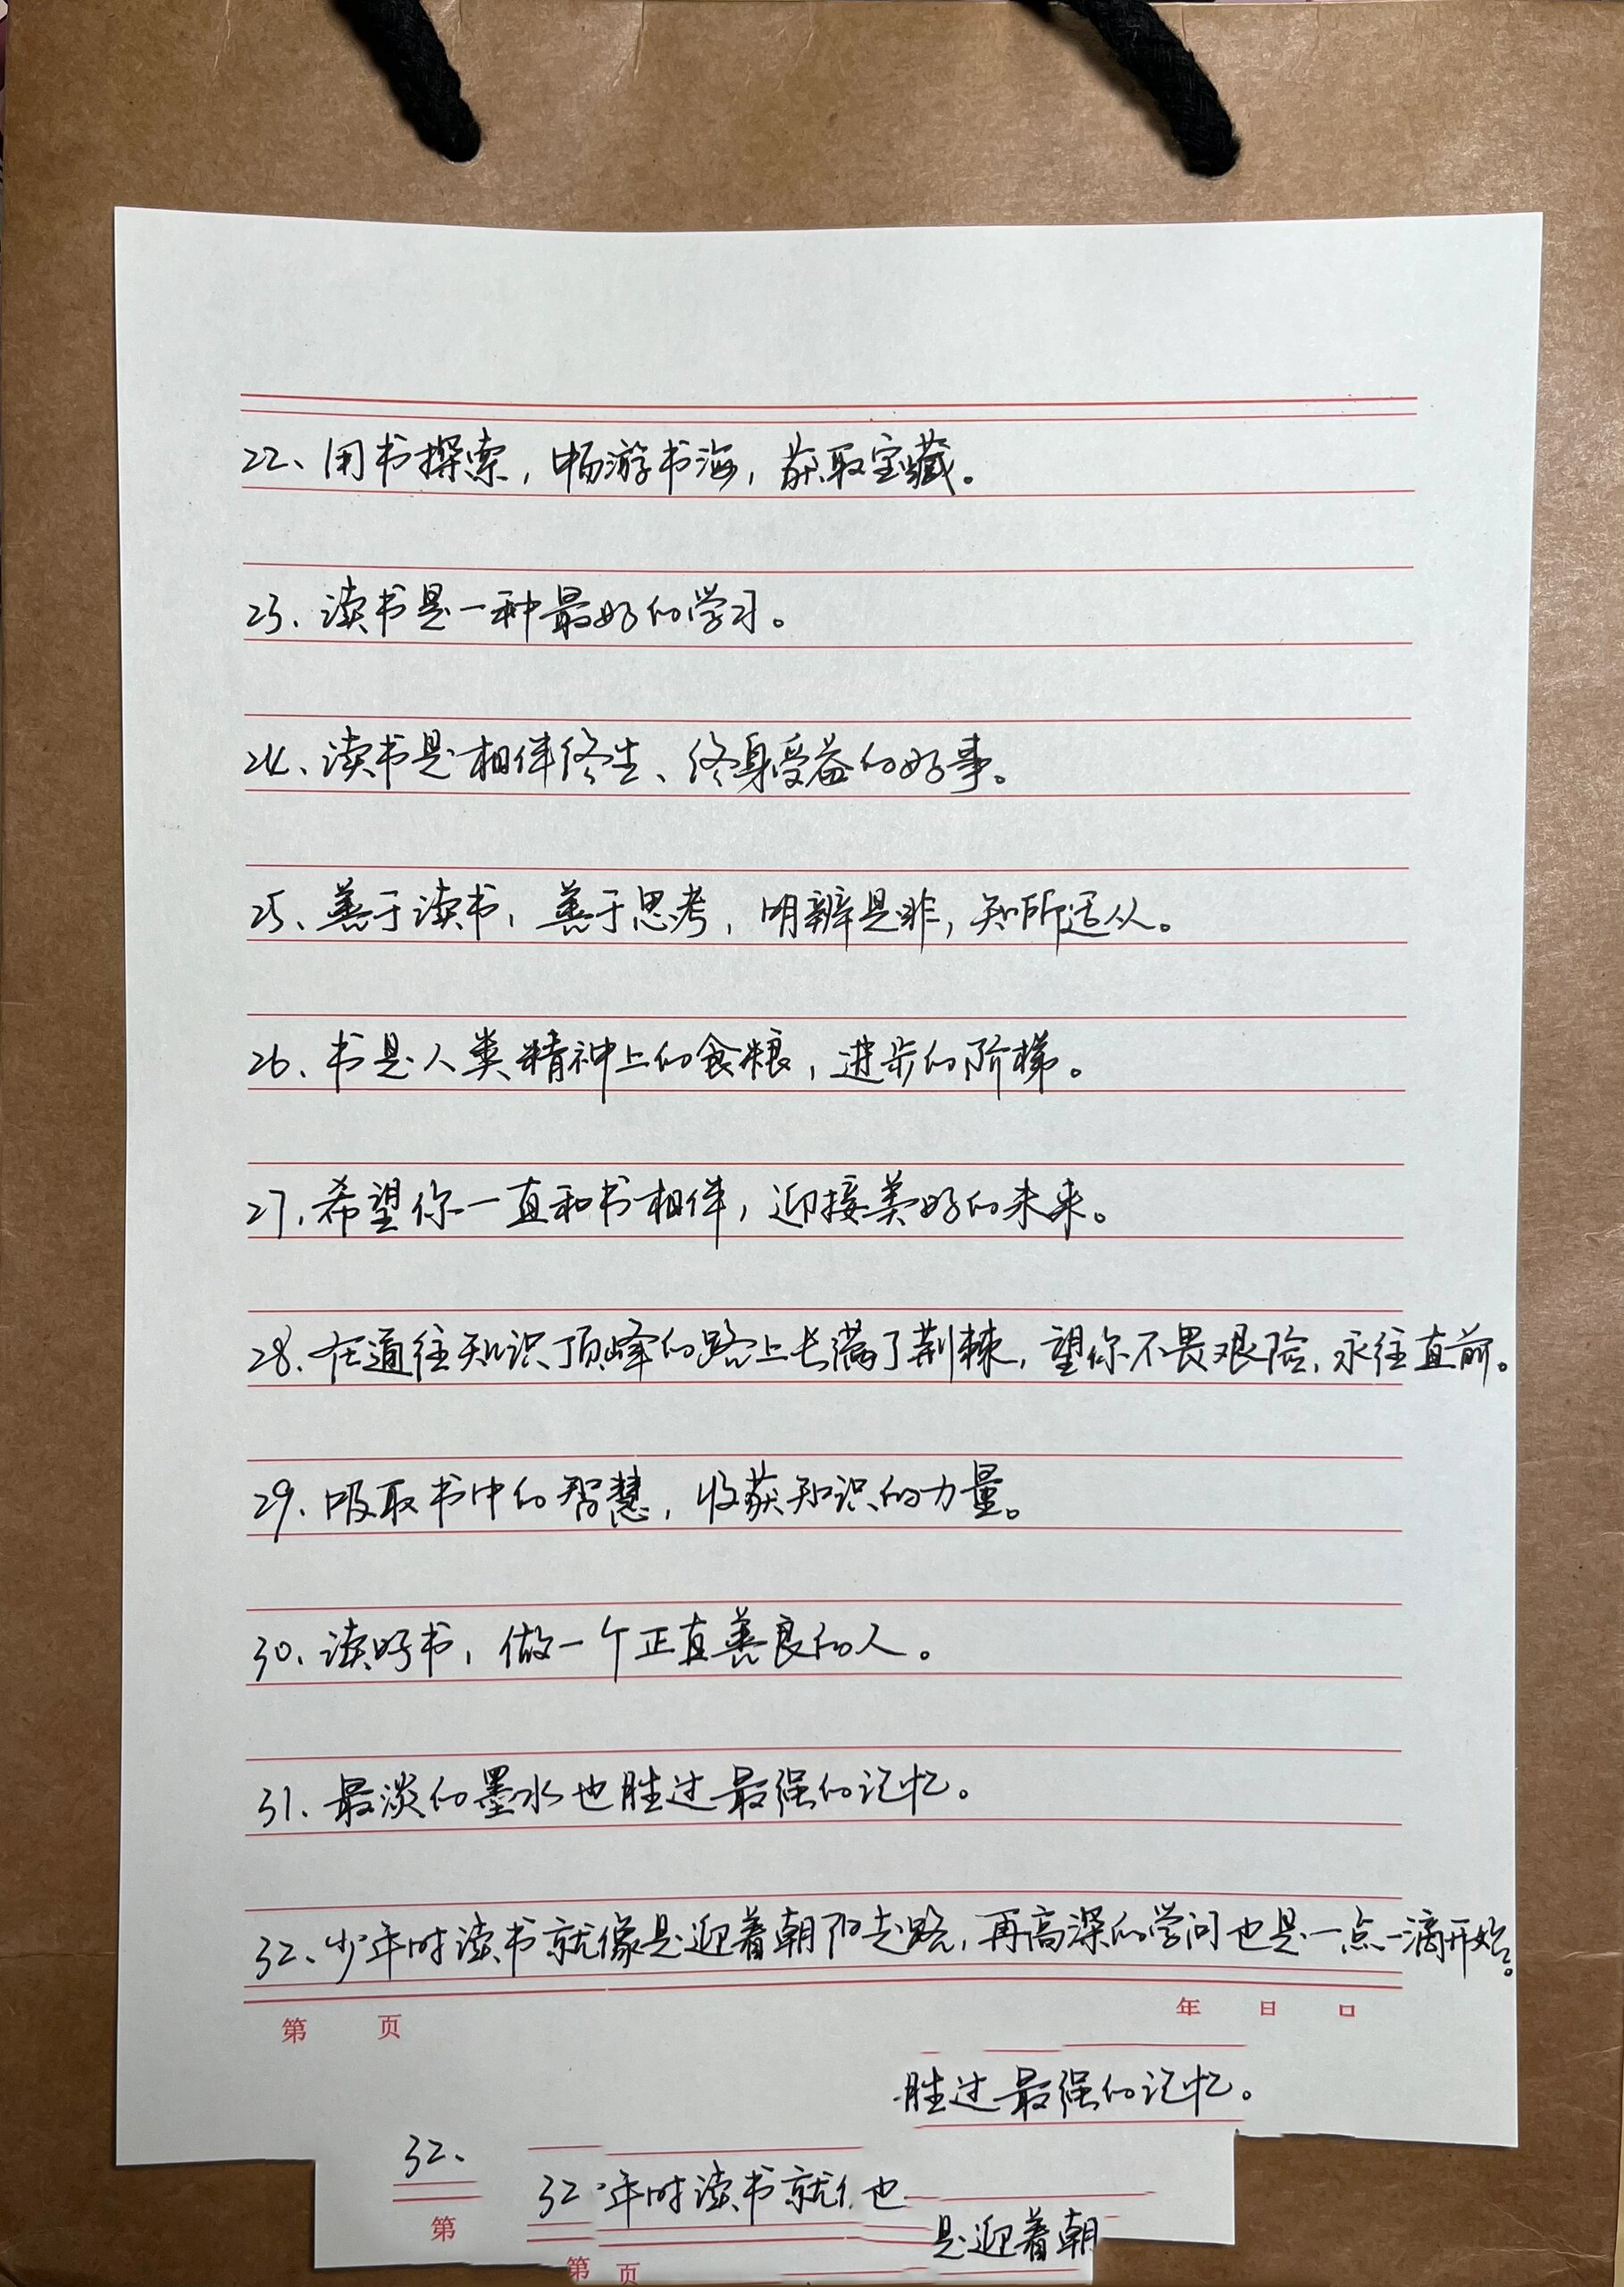 22、用书探索,畅游书海,获取宝藏。
23、读书是一种最好的学习。
24、读书是相伴终生、终身受益的好事。
25、善于读书,善于思考,明辨是非,知所适从。
26、书是人类精神上的食粮,进步的阶梯。
27、希望你一直和书相伴,迎接美好的未来。
28、在通往知识顶峰的路上长满了荆棘,望你不畏艰险,永往直前。
29、吸取书中的智慧,收获知识的力量。
30、读好书,做一个正直善良的人。
31、最淡的墨水也胜过最强的记忆。
32、少年时读书就像是迎着朝阳走路,再高深的学问也是一点一滴开始。
第 页 年 日
胜过最强的记忆。
32、
32 年时读书就 也
第
是迎着朝
第 页